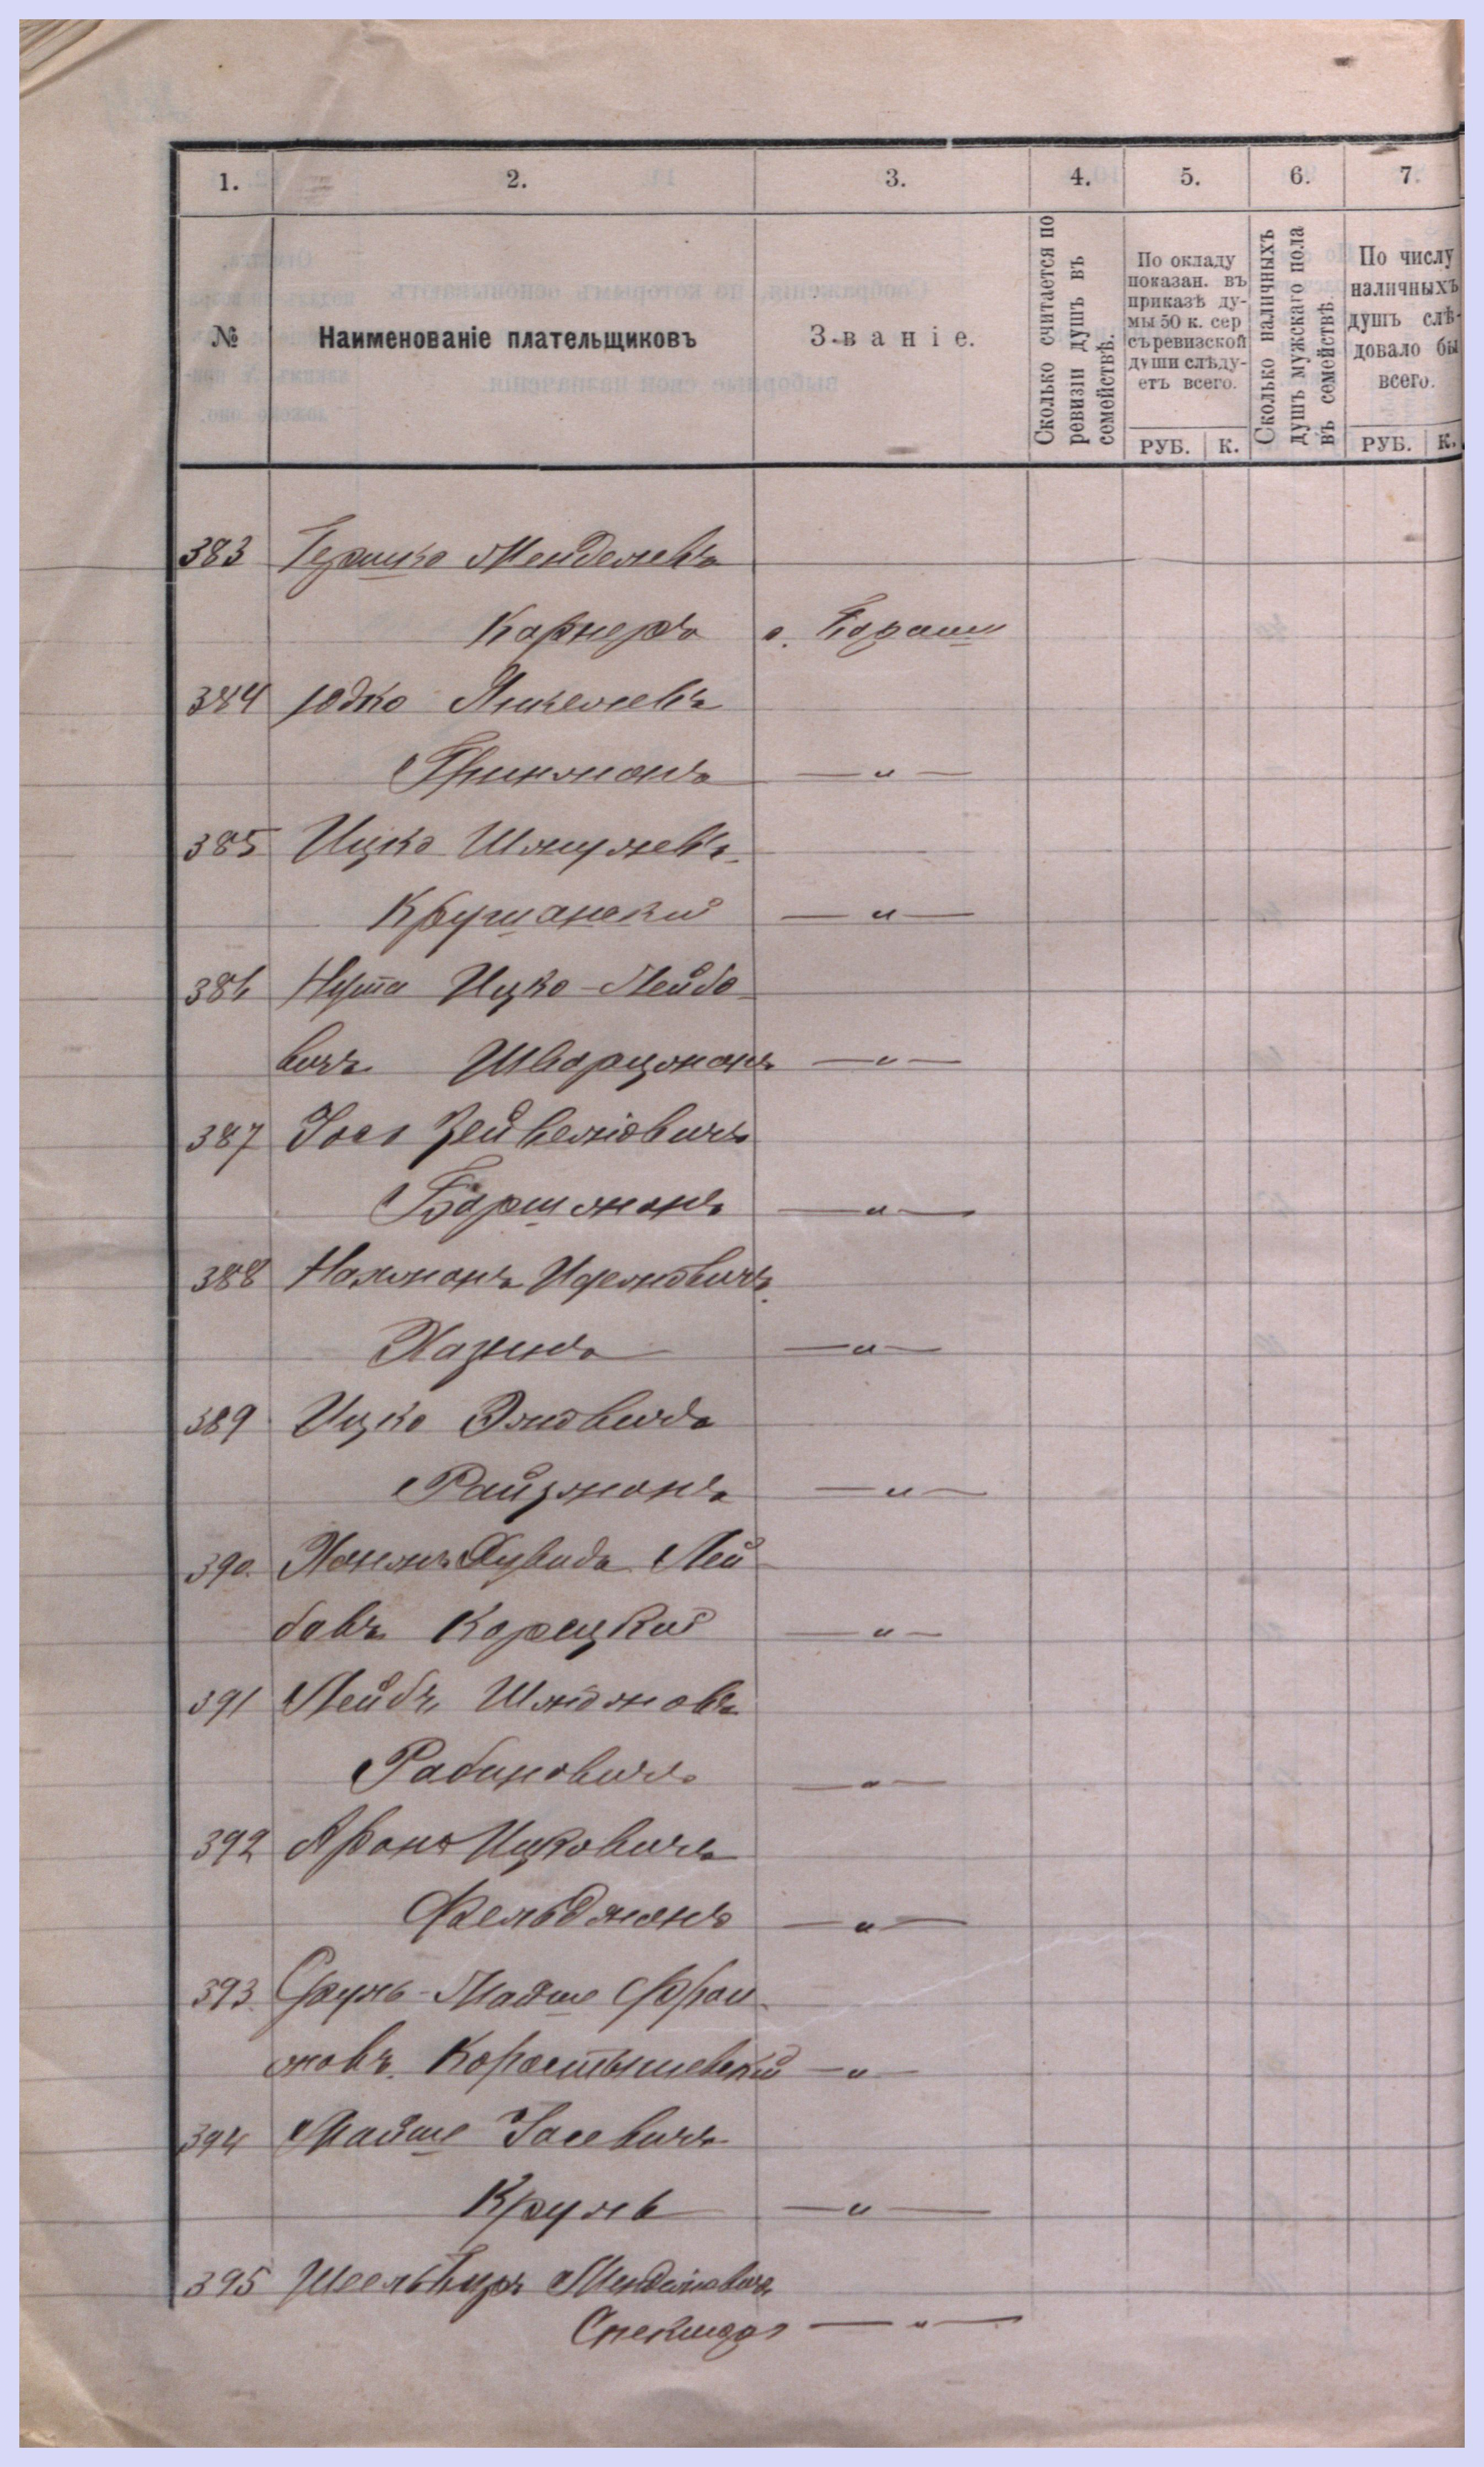 1. 2. 3. 4. 5. 6. 7.
№
Наименованіе плательщиковъ
Званіе.
Сколько считается по ревизіи душъ въ семействѣ.
По окладу показан. въ приказѣ думы 50 к. сер съ ревизской души слѣдуетъ всего.
РУБ. К.
Сколько наличныхъ душъ мужскаго пола въ семействѣ.
По числу наличныхъ душъ слѣдовало бы всего.
РУБ. К.
383 Гершко Менделевъ
Карнеръ
384 Юдко Янкелевъ
Фишманъ — „ —
385 Ицко Шмулевъ
Крушанскій — „ —
386 Нута Ицко-Лейбо-
вичъ Шварцманъ — „ —
387 Іось Зейвеліовичъ
Боршманъ — „ —
388 Нахманъ
Хазинъ — „ —
389 Ицко Эліовичъ
Райзманъ — „ —
390. Давидъ Лей-
бовъ Корецкій — „ —
391 Лейбъ Шліомовъ
Рабиновичъ — „ —
392 Аронъ Ицковичъ
Фельдманъ — „ —
393. Сруль-Мойше Фрои-
мовъ Коростышевскій — „ —
394 Мойше Іосевичъ
Круль — „ —
395 Менделіовичъ
Спекторъ — „ —